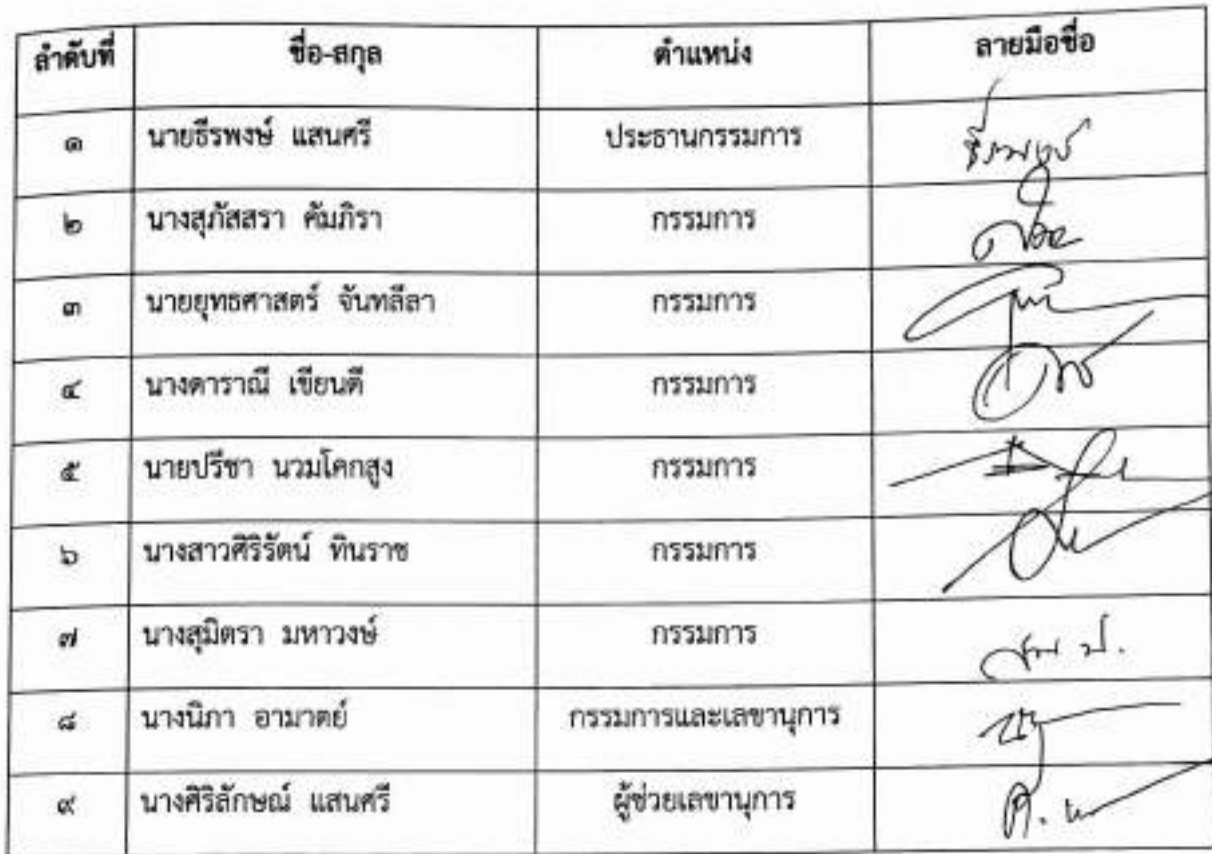 ลำดับที่ ชื่อ-สกุล ตำแหน่ง ลายมือชื่อ
๑ นายธีรพงษ์ แสนศรี ประธานกรรมการ ธีรพงษ์
๒ นางสุภัสสรา คัมภิรา กรรมการ
๓ นายยุทธศาสตร์ จันทลีลา กรรมการ
๔ นางดาราณี เขียนดี กรรมการ
๕ นายปรีชา นวมโคกสูง กรรมการ
๖ นางสาวศิริรัตน์ ทินราช กรรมการ
๗ นางสุมิตรา มหาวงษ์ กรรมการ
๘ นางนิภา อามาตย์ กรรมการและเลขานุการ
๙ นางศิริลักษณ์ แสนศรี ผู้ช่วยเลขานุการ